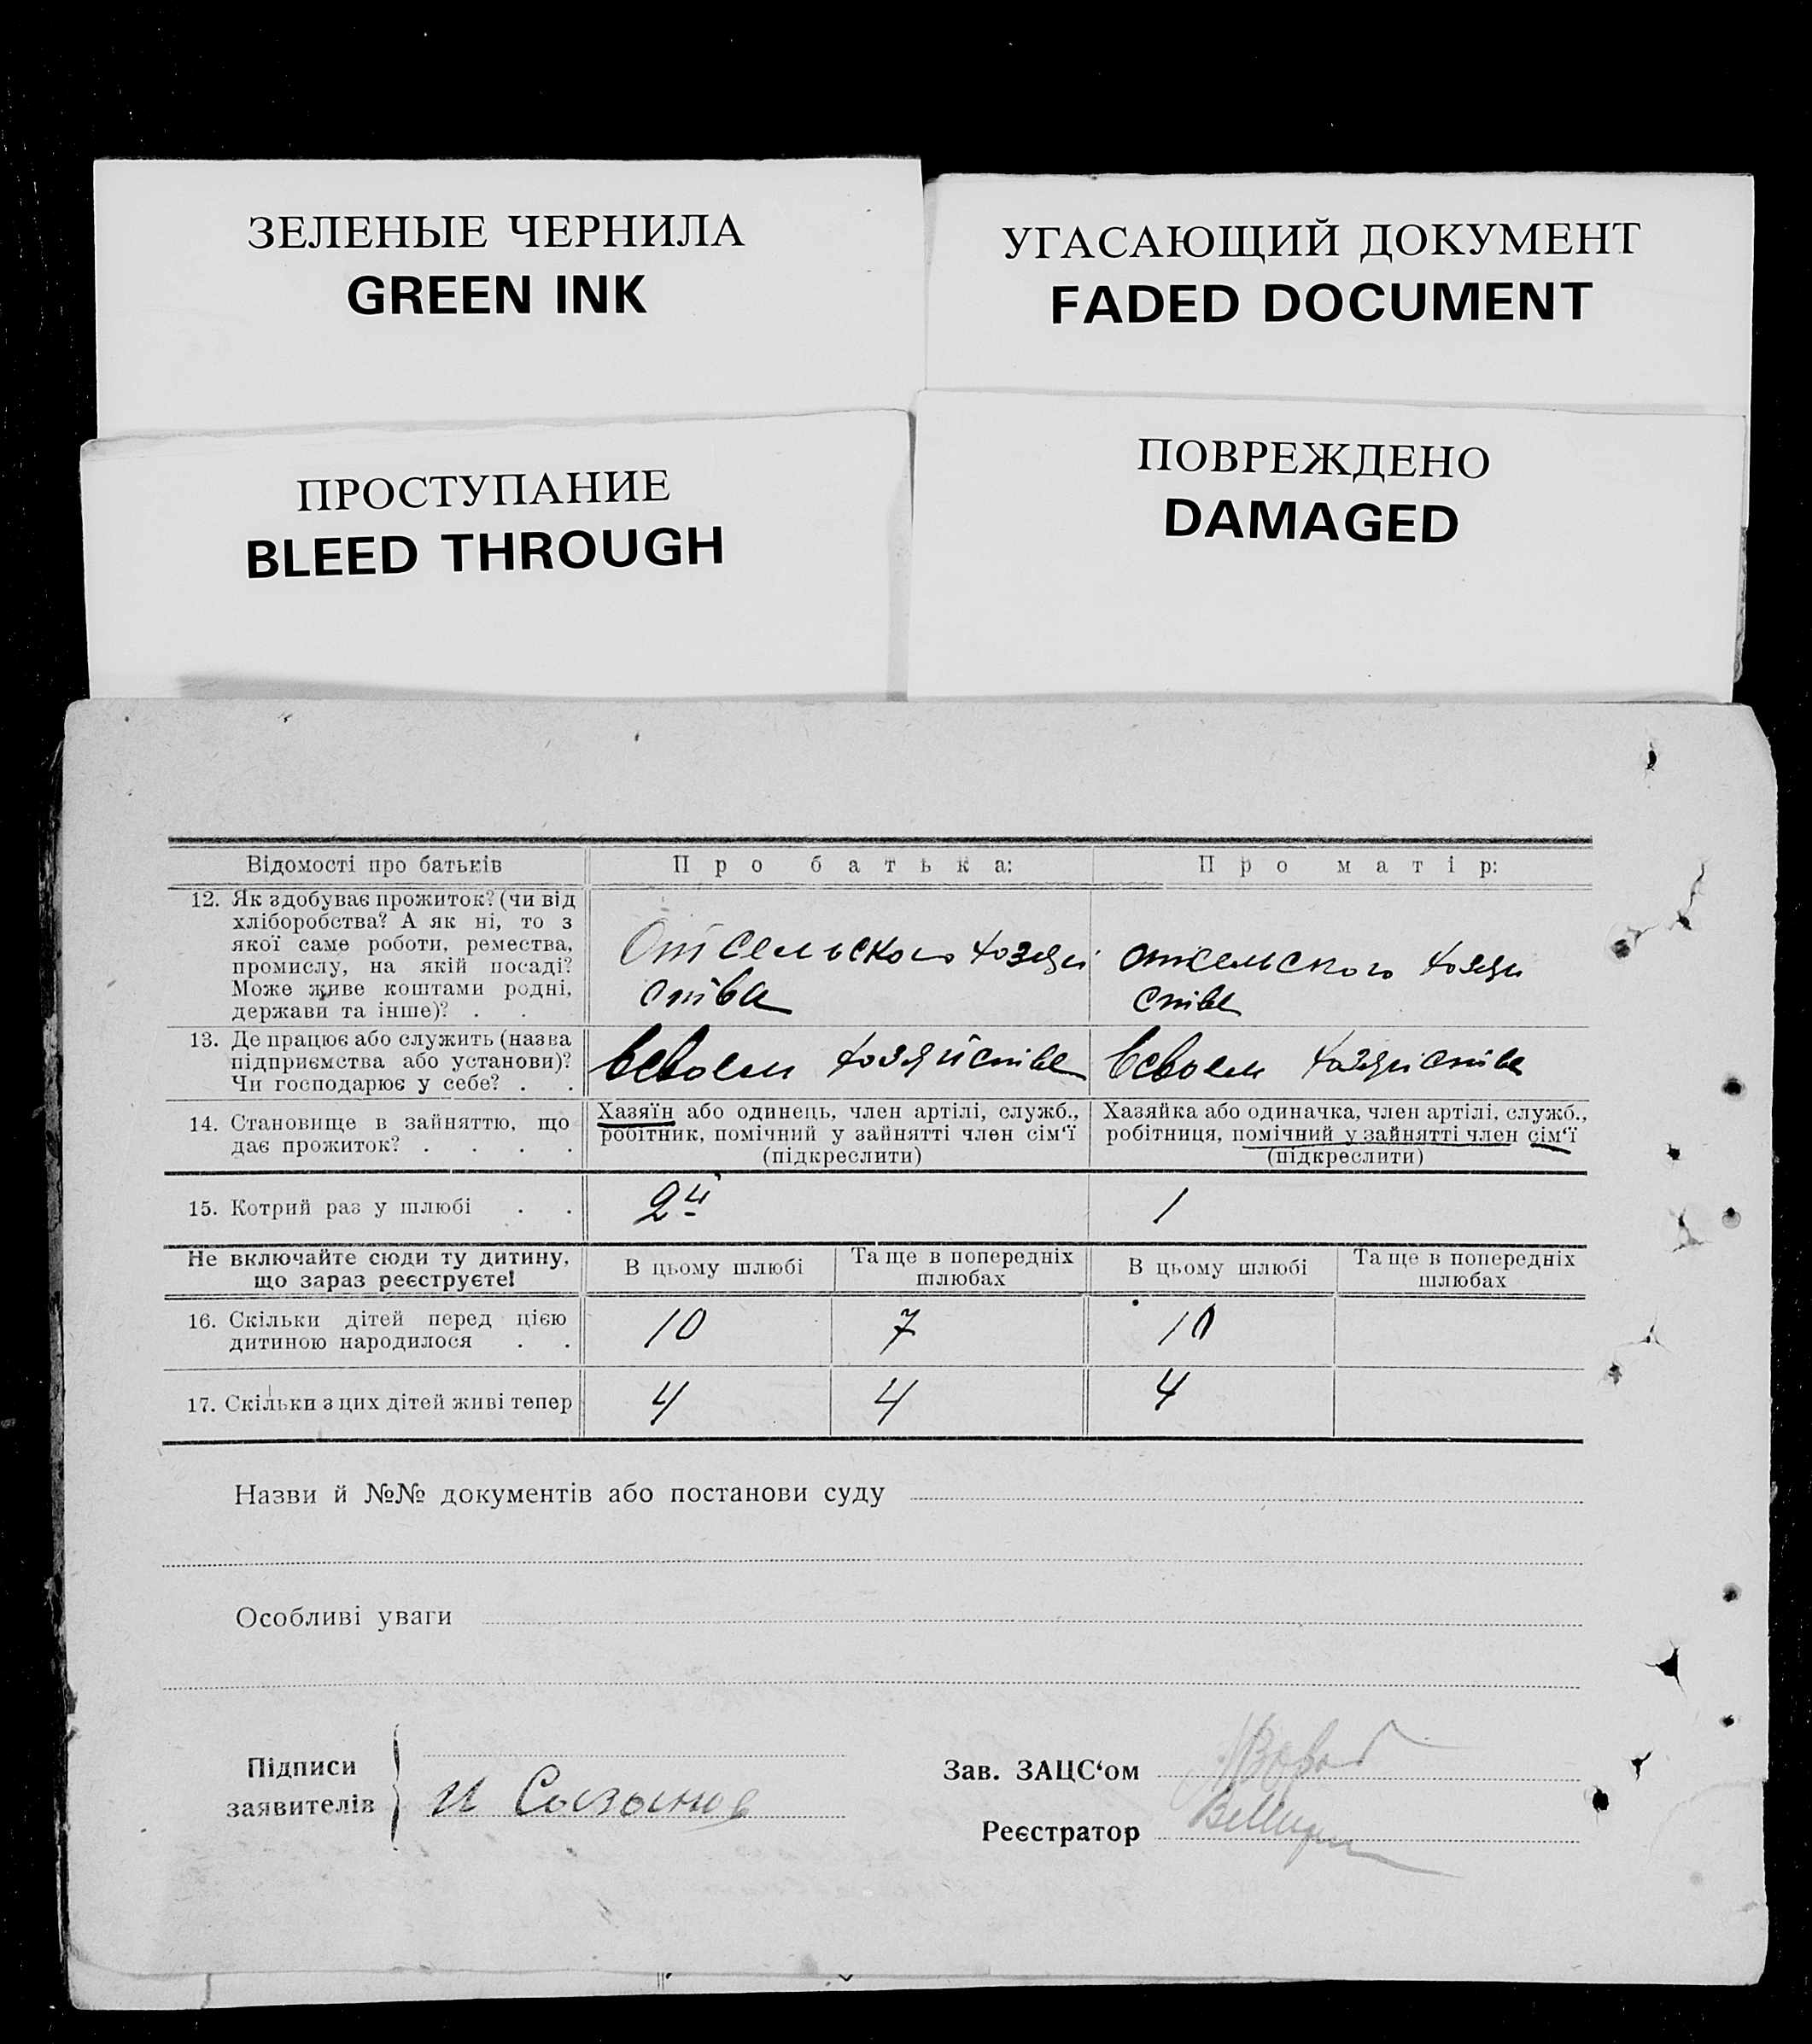 ЗЕЛЕНЫЕ ЧЕРНИЛА
GREEN INK
УГАСАЮЩИЙ ДОКУМЕНТ
FADED DOCUMENT
ПРОСТУПАНИЕ
BLEED THROUGH
ПОВРЕЖДЕНО
DAMAGED
Відомості про батьків
Про батька:
Про матір:
12. Як здобуває прожиток? (чи від
хліборобства? А як ні, то з
якої саме роботи, ремества,
промислу, на якій посаді?
Може живе коштами родні,
держави та інше)? . .
От сельского хозяй
ства
от сельского хозяй
ства
13. Де працює або служить (назва
підприємства або установи)?
Чи господарює у себе? . .
в своем хозяйстве
в своем хозяйстве
14. Становище в зайняттю, що
дає прожиток? . . . .
Хазяїн або одинець, член артілі, служб.,
робітник, помічний у зайнятті член сім‘ї
(підкреслити)
Хазяйка або одиначка, член артілі, служб.,
робітниця, помічний у зайнятті член сім‘ї
(підкреслити)
15. Котрий раз у шлюбі . .
2й
1
Не включайте сюди ту дитину,
що зараз реєструєте!
В цьому шлюбі
Та ще в попередніх
шлюбах
В цьому шлюбі
Та ще в попередніх
шлюбах
16. Скільки дітей перед цією
дитиною народилося . .
10
7
10
17. Скільки з цих дітей живі тепер
4
4
4
Назви й №№ документів або постанови суду
Особливі уваги
Підписи
заявителів
И Сазанов
Зав. ЗАЦС‘ом
Реєстратор